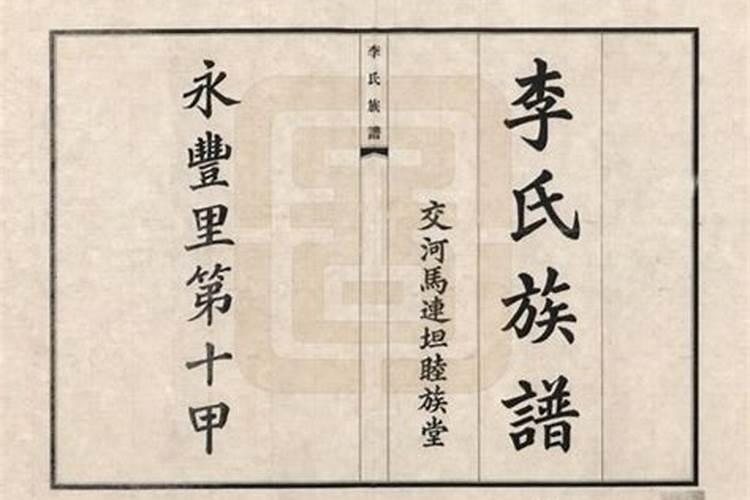 李氏族譜
交河馬連坦睦族堂
李氏族譜
永豐里第十甲